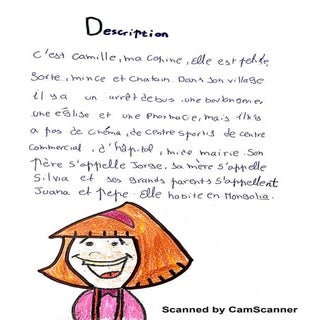 Description
C'est camille, ma copine, elle est petite,
sorte, mince et chatain. Dans son village
il y a un arrêt de bus, une boulangerie,
une église et une Pharmacie, mais il n'y
a pas de cinéma, de centre sportif de centre
commercial, d'hôpital, ni de mairie. Son
Père s'appelle Jorge, sa mère s'appelle
Silvia et ses grands parents s'appellent
Juana et pepe. Elle habite en Mongolia.
Scanned by CamScanner